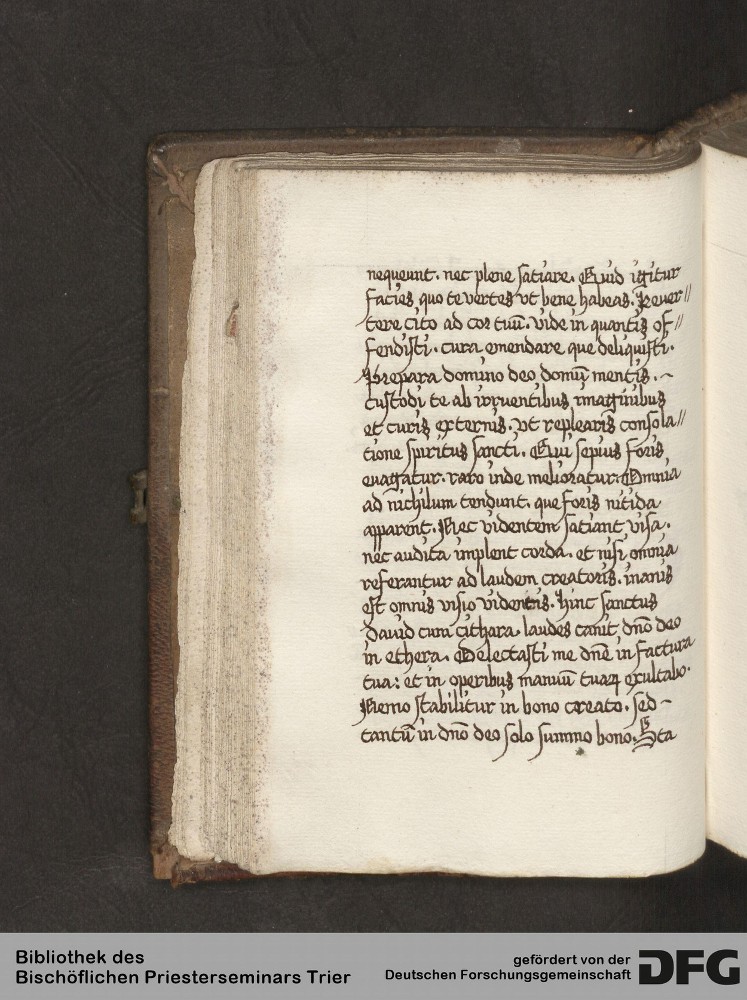 nequeunt. nec plene satiare. Quid igitur
facies, quo te vertes vt bene habeas. Rever//
tere cito ad cor tuū. vide in quantis of//
fendisti. cura emendare que deliquisti.
Prepara domino deo domū mentis. ~
Custodi te ab irruentibus imaginibus
et curis externis. vt replearis consola//
tione spiritus sancti. Qui sepius foris
euagatur. raro inde melioratur. Omnia
ad nichilum tendunt. que foris nitida
apparent. Nec videntem satiant visa.
nec audita implent corda. et nisi omnia
referantur ad laudem creatoris. inanis
est omnis visio videntis. hinc sanctus
dauid cum cithara. laudes canit dn̄o deo
in ethera. Delectasti me dn̄e in factura
tua: et in operibus manuū tuaꝝ exultabo.
Nemo stabilitur in bono creato. sed ~
tantū in dn̄o deo solo summo bono. Sta
Bibliothek des
Bischöflichen Priesterseminars Trier
gefördert von der
Deutschen Forschungsgemeinschaft
DFG